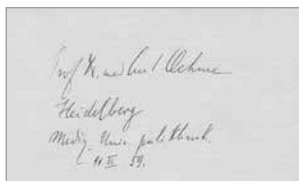 Prof Dr. med Curt Oehme
Heidelberg
Mediz. Univ. poliklinik.
59.